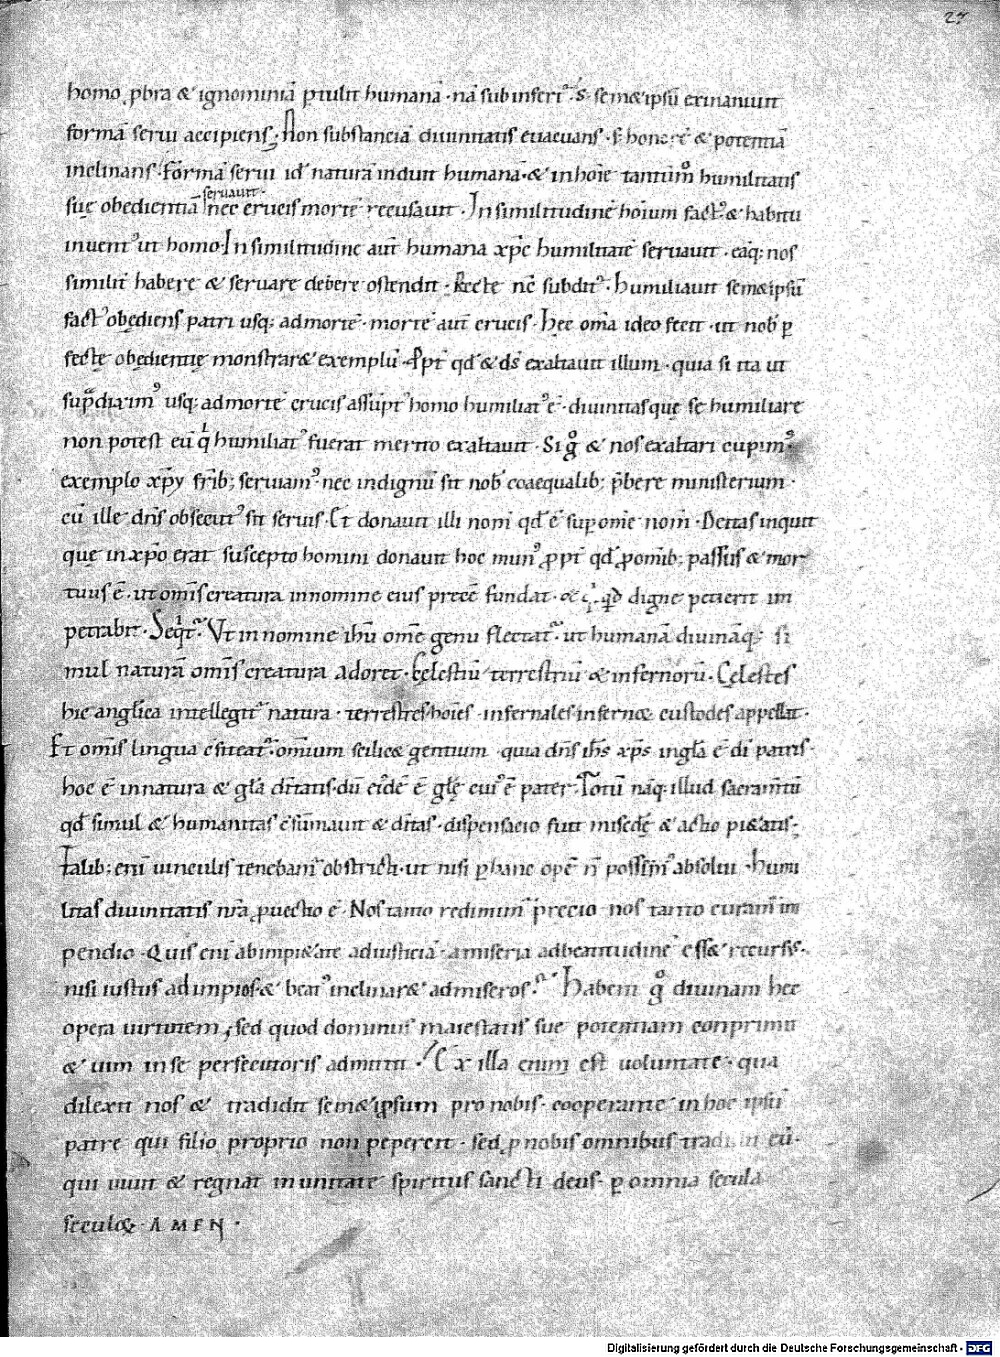 27
homo ꝓbra & ignominiā ꝑtulit humanā · nā subinfert᷑ · S; sem&ipsū exinaniuit
formā serui accipiens · Non substanciā diuinitatis euacuans · s; honorē & potentiā
inclinans · formā serui id ̄ naturā induit humanā · & in hoīe tantūm̊ humilitatis
sue̜ obedientiā seruauit · nec crucis mortē recusauit · In similitudinē hoīum fact᷒ & habitu
inuent᷒ ut homo · In similitudine aut̄ humana xp̄c humilitatē seruauit · eāq; nos
similit̄ habere & seruare debere ostendit · Recte nc̄ subdit᷑ · humiliauit sem&ipsū
fact᷒ obe̜diens patri usq; admortē · mortē aut̄ crucis · Hec om̄a ideo fecit · ut nob̄ ꝑ
fecte̜ obe̜dientie̜ monstrar& exemplū · ꝓpt̄ qd̄ & ds̄ exaltauit illum · quia si ita ut
sup̄dixim᷒ usq; admortē crucis assūpt᷒ homo humiliat᷒ ē · diuinitas que̜ se humiliare
non potest eū qͥ humiliat᷒ fuerat merito exaltauit · Si gͦ & nos exaltari cupim᷒
exemplo xp̄y fr̄ib; seruiam᷒ · nec indignū sit nob̄ coaequalib; p̄bere ministerium ·
cū ille dn̄s obsecut᷒ sit seruis · Et donauit illi nom̄ qd̄ ē sup ome nom̄ · Deitas inquit
que̜ in xp̄o erat suscepto homini donauit hoc mun᷒ ꝓpt̄ qd̄ ꝓ om̄ib; passus & mor
tuus ē · ut om̄is creatura in nomine eius precē fundat · & qͥcqͥd digne petierit im
petrabit · Seqͥt᷑ Vt in nomine ihū om̄e genu flectat᷑ · ut humanā diuināq; si
mul naturā om̄is creatura ador& · Celestiū terrestriū & infernorū · Ce̜lestes
hic anglica intellegit᷑ natura · terrestres hoīes · infernales infernoe custodes appellat ·
Et om̄is lingua cfiteat᷑ · om̄ium scilic& gentium · quia dn̄s ihs̄ xp̄s in gla ē dī patris ·
hoc ē in natura & gla ditatis · dū eidē ē gle̜ cui᷒ ē pater · Totū nāq; illud sacram̄tū
qd̄ simul & humanitas csūmauit & ditas · dispensacio fuit misc̄dę & actio pi&atis ·
Talib; eni uinculis tenebam᷑ obstricti · ut nisi ꝑ hanc opē n̄ possim᷒ absolui · Humi
litas diuinitatis nr̄a ꝓuectio ē · Nos tanto redimim᷑ precio · nos tanto curam᷑ im
pendio · Quis enī ab inpi&ate ad iusticiā · a miseria ad beatitudinē ess& recursus ·
nisi iustus ad impios · & beat᷒ inclinar& ad miseros · Habem᷒ gͦ diuinam hec
opera uirtutem , sed quod dominus maiestatis sue potentiam conprimit
& uim in se persecutoris admittit · Ex illa enim est uoluntate · qua
dilexit nos & tradidit sem&ipsum pro nobis · cooperante in hoc ipsū
patre qui filio proprio non pepercit · sed ꝓ nobis omnibus tradidit eū ·
qui uiuit & regnat in unitate spiritus sancti deus · ꝑ omnia secula
seculoꝝ · AMEN ·
Digitalisierung gefördert durch die Deutsche Forschungsgemeinschaft - DFG